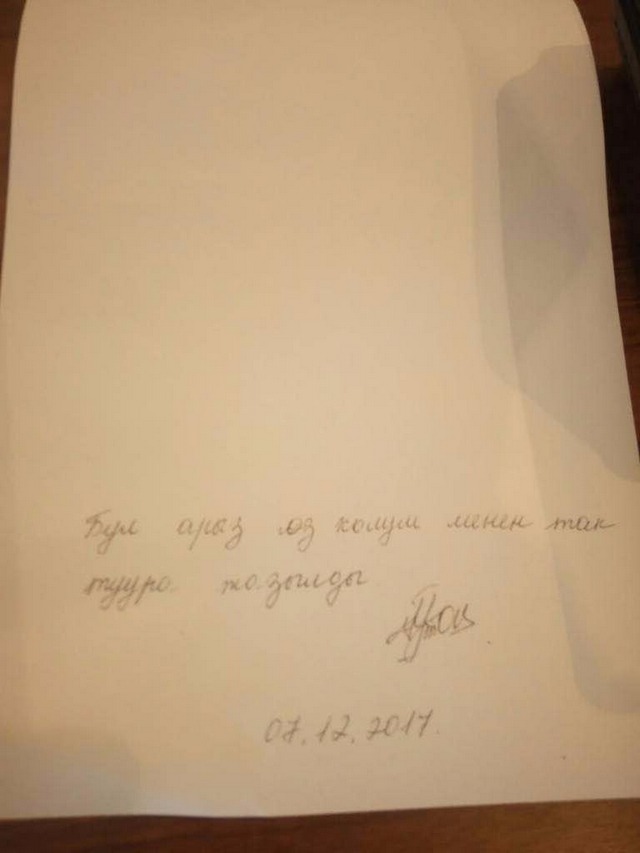 Бул арыз өз колум менен так
тууро жазылды
07.12.2017.